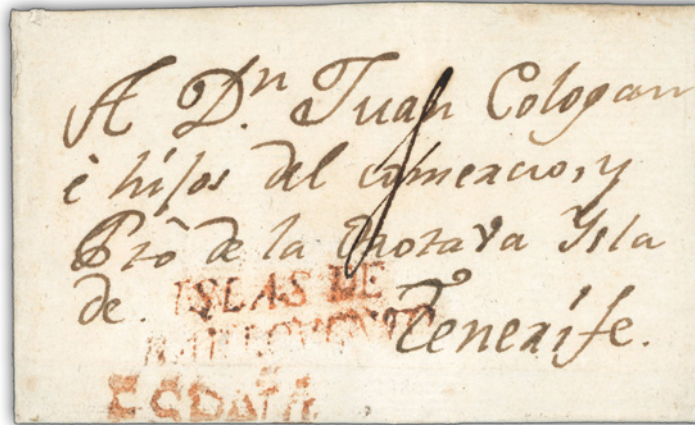 A Dn. Juan Cologan
è hijos del comercio, y
Pto de la Orotava Ysla
de Tenerife.
ISLAS DE
BARLOVENTO
ESPAÑA